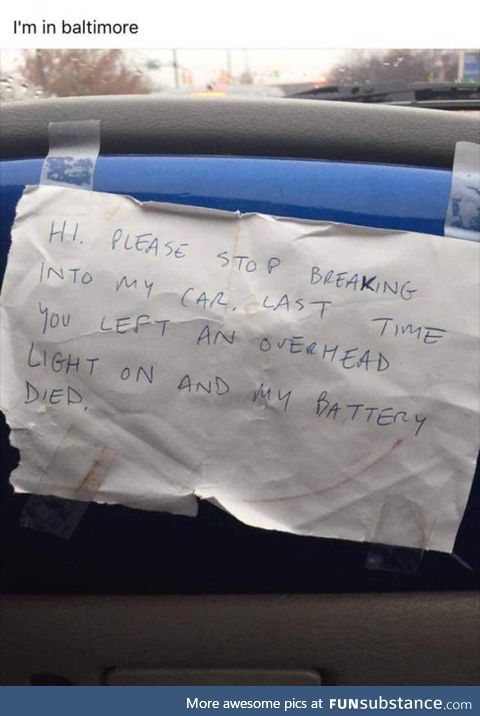 I'm in baltimore
HI. PLEASE STOP BREAKING
INTO MY CAR. LAST TIME
YOU LEFT AN OVERHEAD
LIGHT ON AND MY BATTERY
DIED.
More awesome pics at FUNsubstance.com